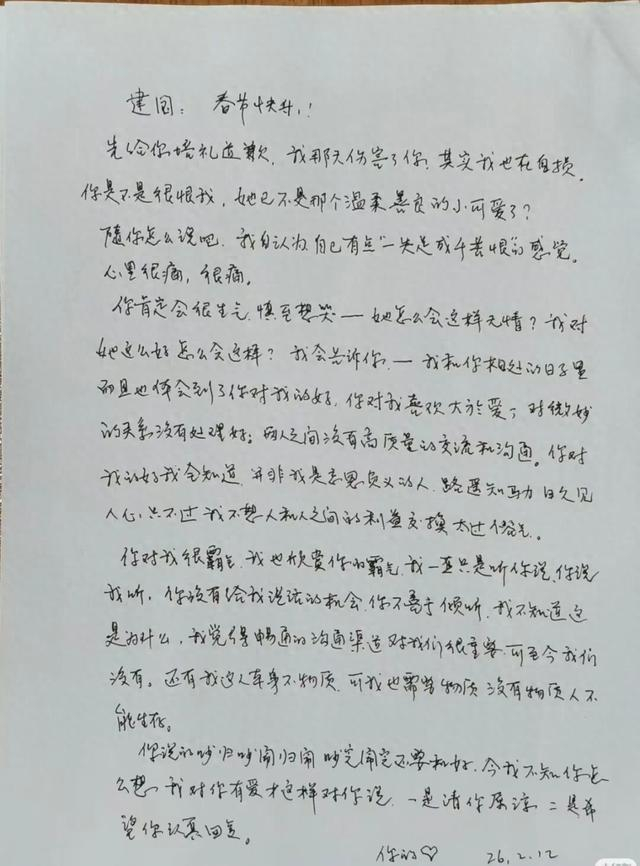 建国：春节快乐！
先给你培礼道歉，我那天伤害了你，其实我也在自损，
你是不是很恨我，她已不是那个温柔善良的小可爱了？
随你怎么说吧，我自认为自己有点“一失足成千苦恨”的感觉。
心里很痛，很痛。
你肯定会很生气，慎至想哭——她怎么会这样无情？我对
她这么好怎么会这样？我会告诉你，—我和你相处的日子里
而且也体会到了你对我的好，你对我喜欢大於爱，对微妙
的关系没有处理好；两人之间没有高质量的交流和沟通。你对
我的好我全知道，并非我是忘恩负义的人，路遥知马力日久见
人心，只不过我不想人和人之间的利益交换太过俗气。
你对我很霸气，我也欣赏你的霸气，我一直只是听你说，你说
我听，你没有给我说话的机会，你不善于倾听，我不知道这
是为什么，我觉得畅通的沟通渠道对我们很重要，可至今我们
没有。还有我这人本身不物质，可我也需要物质，没有物质人不
能生存。
你说的吵归吵闹归闹吵完闹完还要和好，今我不知你怎
么想，我对你有爱才这样对你说，一是请你原谅，二是希
望你认真回复。
你的♡ 26.2.12